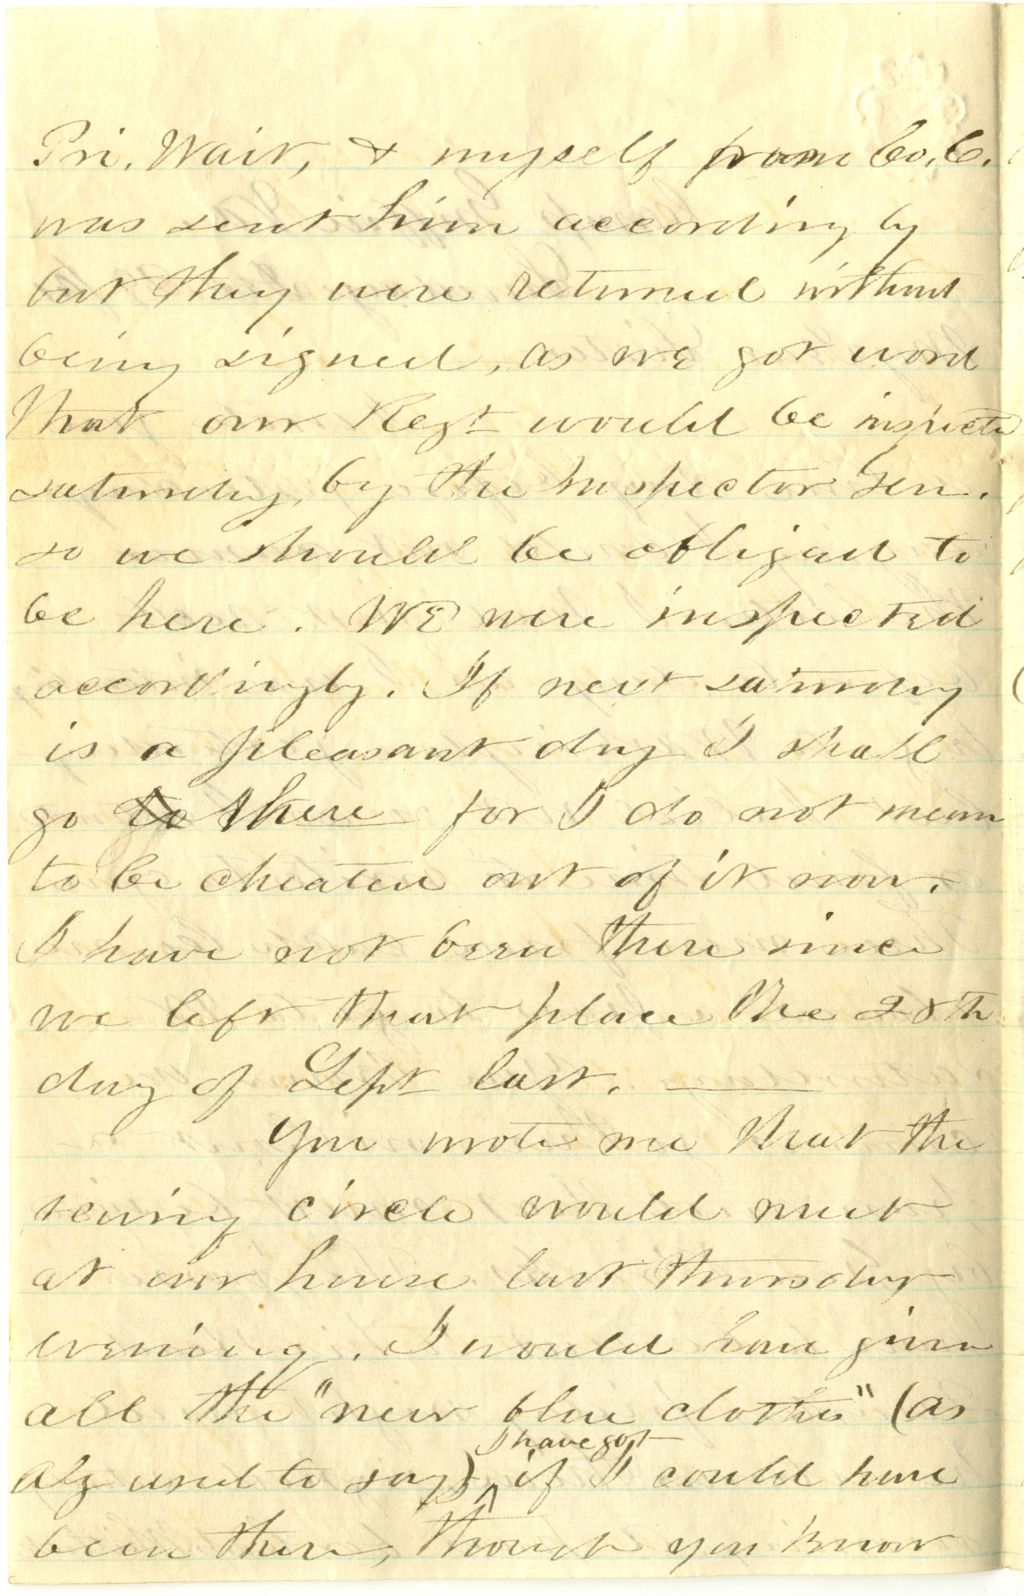 Pri. Wait, & myself from Co. C.
was sent him according by
but they were returned without
being signed, as we got word
that our Regt would be inspected
saturday, by the Inspector Gen.
so we should be obliged to
be here. WE were inspected
accordingly. If next saturday
is a pleasant day I shall
go to there for I do not mean
to be cheated out of it now.
I have not been there since
we left that place the 28th
day of Sept last.
You wrote me that the
sewing circle would meet
at our house last thursday
evening. I would have given
all the "new blue clothes" (as
I have got
Alz used to say) ^ if I could have
been there, though you know